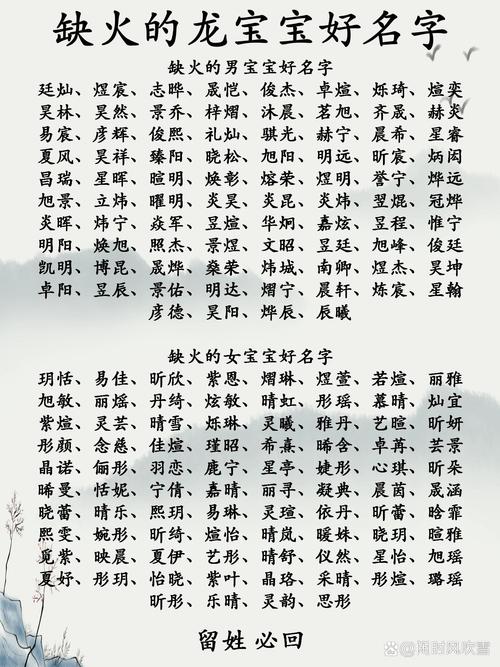 缺火的龙宝宝好名字
缺火的男宝宝好名字
廷灿、煜宸、志晔、晟恺、俊杰、卓煊、烁琦、煊奕
昊林、昊然、景乔、梓熠、沐晨、茗旭、齐晟、赫炎
易宸、彦辉、俊熙、礼灿、骐光、赫宁、晨希、星睿
夏风、昊祥、臻阳、晓松、旭阳、明远、昕宸、炳闳
昌瑞、星晖、暄明、焕彰、熔荣、煜明、誉宁、烨远
旭景、立炜、曜明、炎昊、炎昆、炎炜、翌焜、冠烨
炎晖、炜宁、焱军、昱煊、华炯、嘉炫、昱程、惟宁
明阳、焕旭、照杰、景煜、文昭、昱廷、旭峰、俊廷
凯明、博昆、晟烨、燊荣、炜城、南卿、煜杰、昊坤
卓阳、昱辰、景佑、明达、熠宁、晨轩、炼宸、星翰
彦德、昊阳、烨辰、辰曦
缺火的女宝宝好名字
玥恬、易佳、昕欣、紫恩、熠琳、煜萱、若煊、丽雅
旭敏、丽瑶、丹绮、炫敏、晴虹、彤瑶、慕晴、灿宜
紫煊、灵芸、晴雪、烁琳、灵曦、雅丹、艺暄、昕妍
彤颜、念慈、佳煊、瑾昭、希熹、晞含、卓苒、芸景
晶诺、俪彤、羽恋、鹿宁、星亭、婕彤、心琪、昕朵
晞曼、恬妮、宁倩、嘉晴、丽寻、凝典、晨茵、晟涵
晓蕾、晴乐、熙玥、易琳、灵瑄、依丹、昕蕾、晗霏
熙雯、婉彤、昕绮、煊怡、晴岚、暖姝、晓玥、暄雅
觅紫、映晨、夏伊、艺彤、晴舒、仪然、星怡、旭瑶
夏妤、彤玥、怡晓、紫叶、晶珞、采晴、彤煊、璐瑶
昕彤、乐晴、灵韵、思彤
留姓 必回